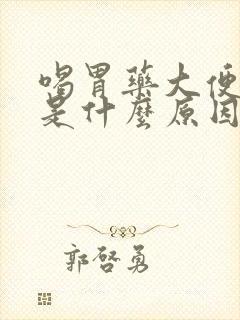 喝胃藥大便
是什麼原因
郭啓勇